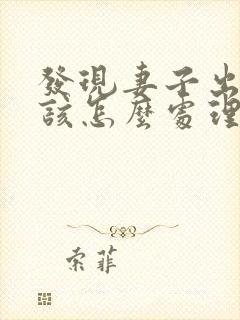 發現妻子出
該怎麼處理
索菲